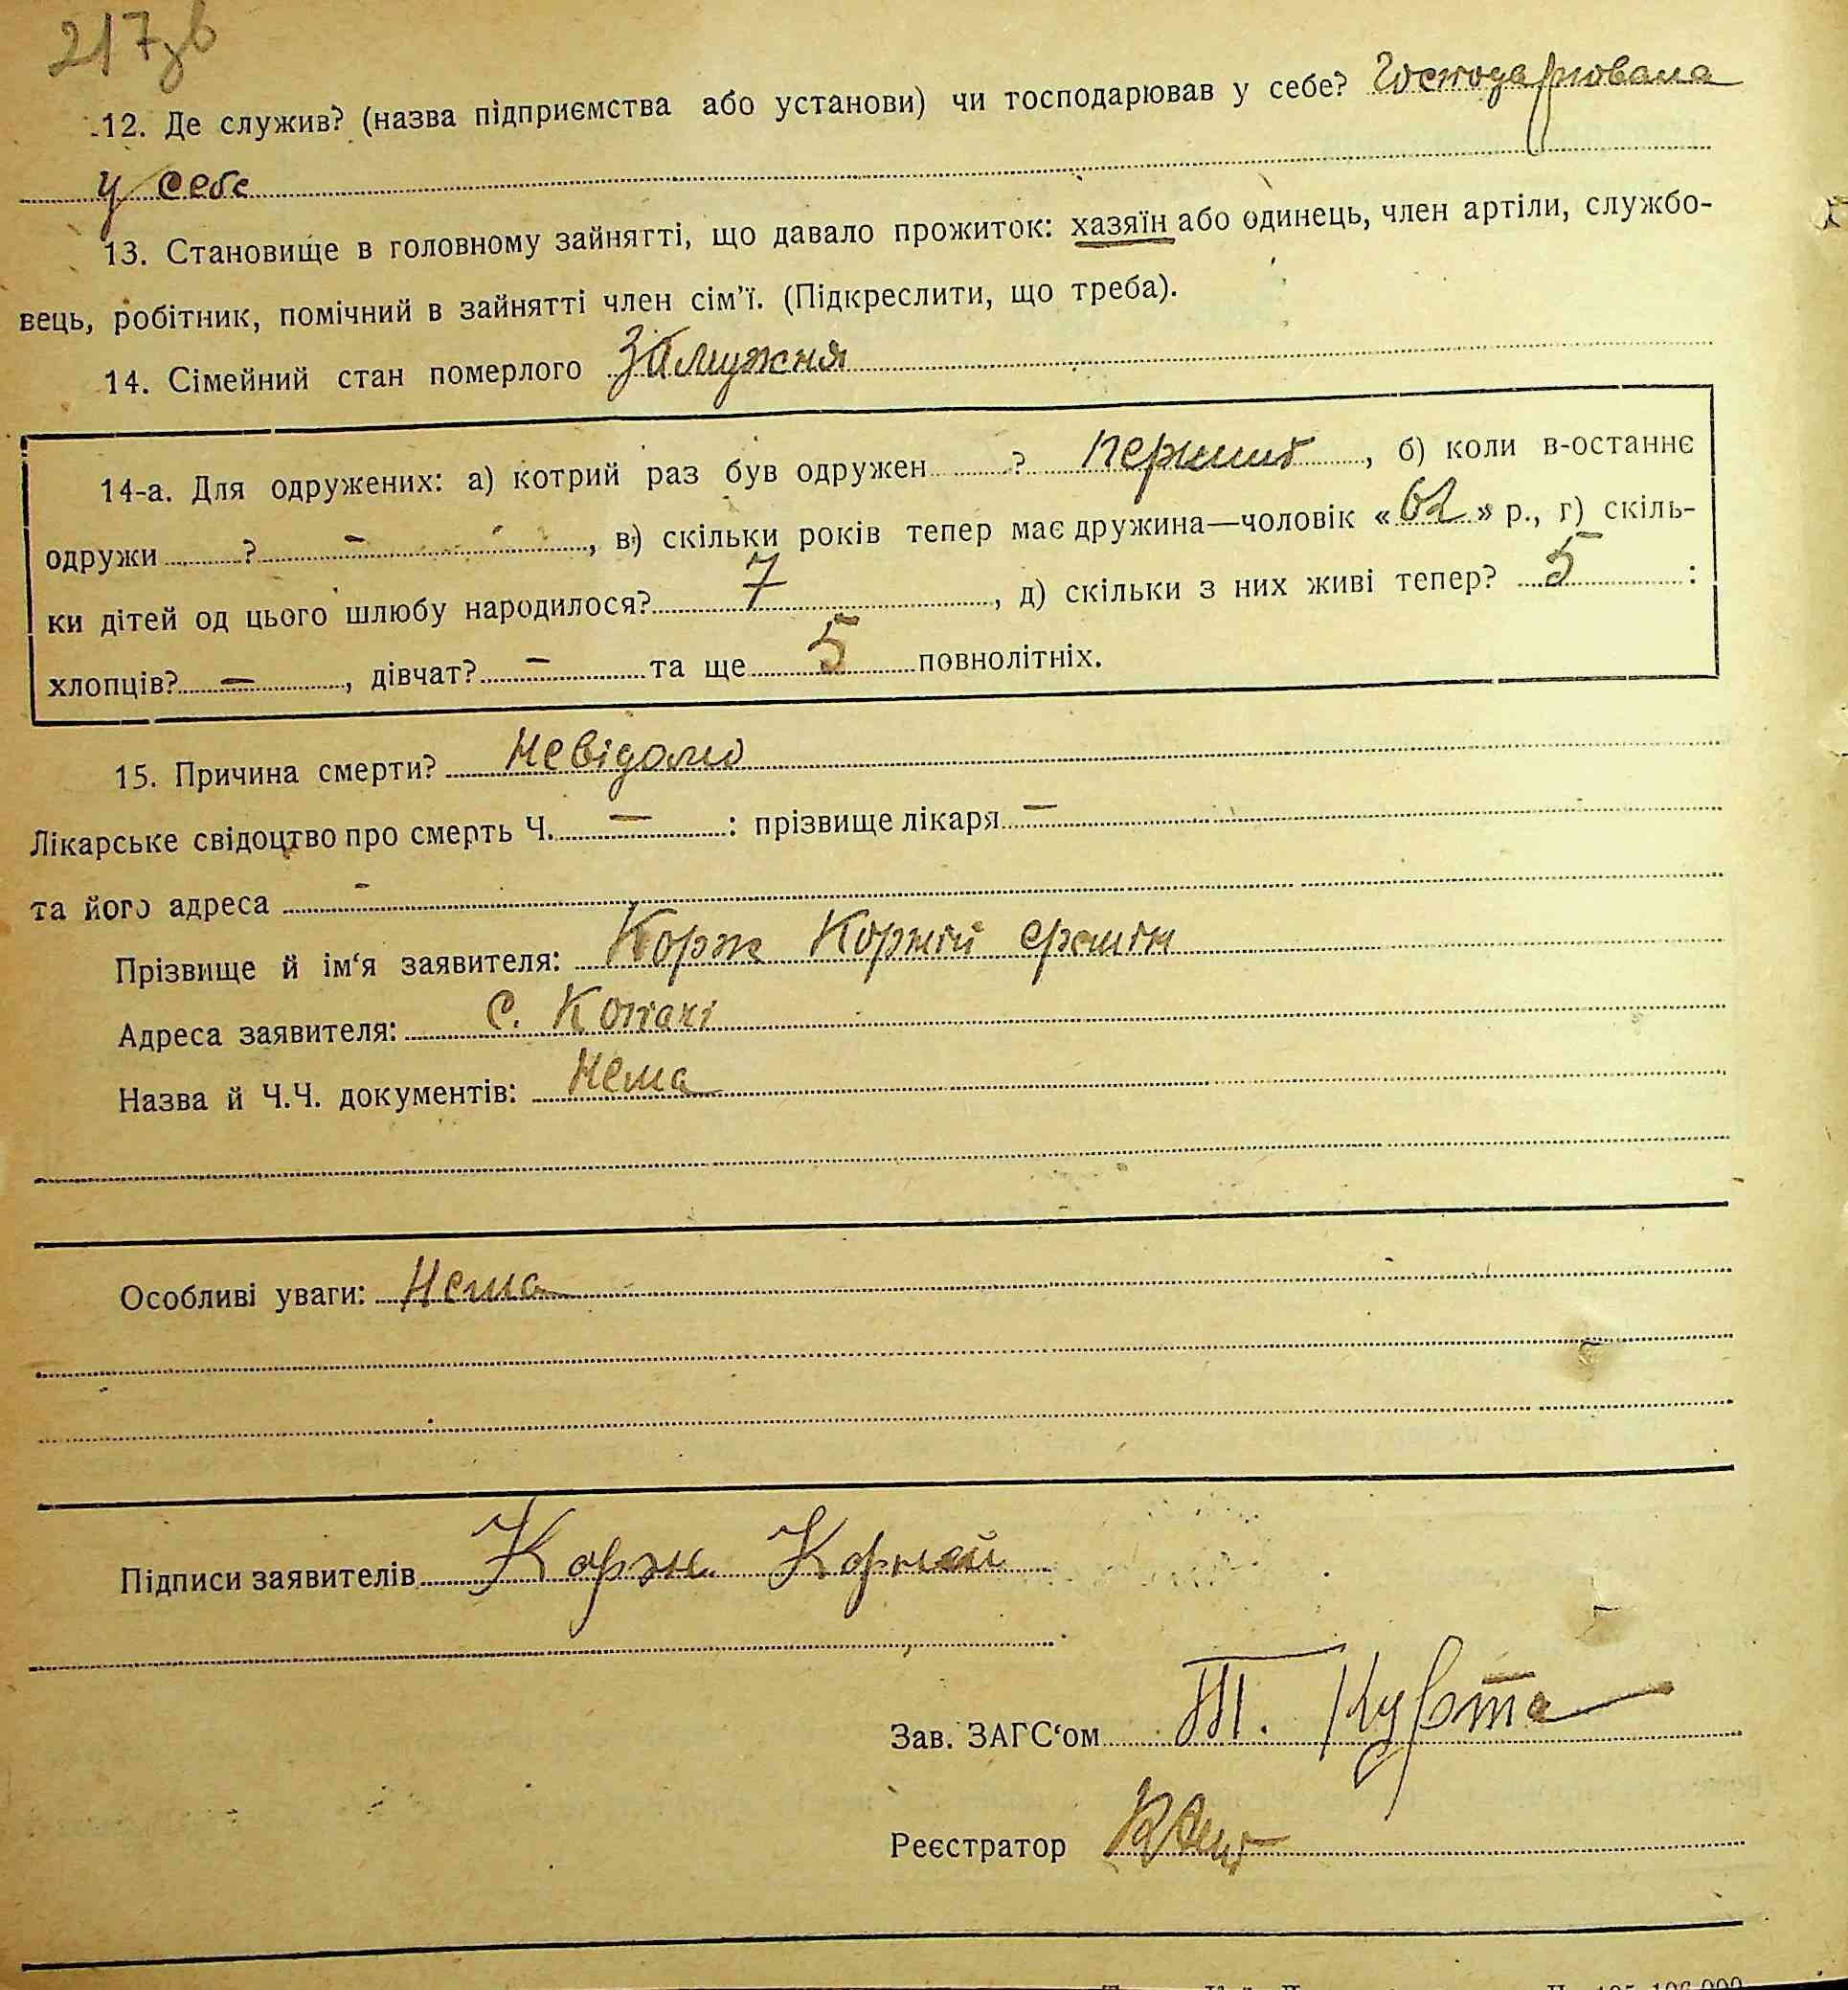 217зв
12. Де служив? (назва підприємства або установи) чи господарював у себе? Господарювала
у себе
13. Становище в головному зайнятті, що давало прожиток: хазяїн або одинець, член артіли, службо-
вець, робітник, помічний в зайнятті член сім'ї. (Підкреслити, що треба).
14. Сімейний стан померлого Замужня
14-а. Для одружених: а) котрий раз був одружен ? перший, б) коли в-останнє
одружи ? –, в) скільки років тепер має дружина—чоловік «62» р., г) скіль-
ки дітей од цього шлюбу народилося? 7, д) скільки з них живі тепер? 5 :
хлопців? –, дівчат? – та ще 5 повнолітніх.
15. Причина смерти? Невідомо
Лікарське свідоцтво про смерть Ч. – : прізвище лікаря –
та його адреса –
Прізвище й ім'я заявителя: Корж Корній
Адреса заявителя: с. Копачі
Назва й Ч.Ч. документів: Нема
Особливі уваги: Нема
Підписи заявителів Корж Корній
Зав. ЗАГС'ом Т. Курта
Реєстратор